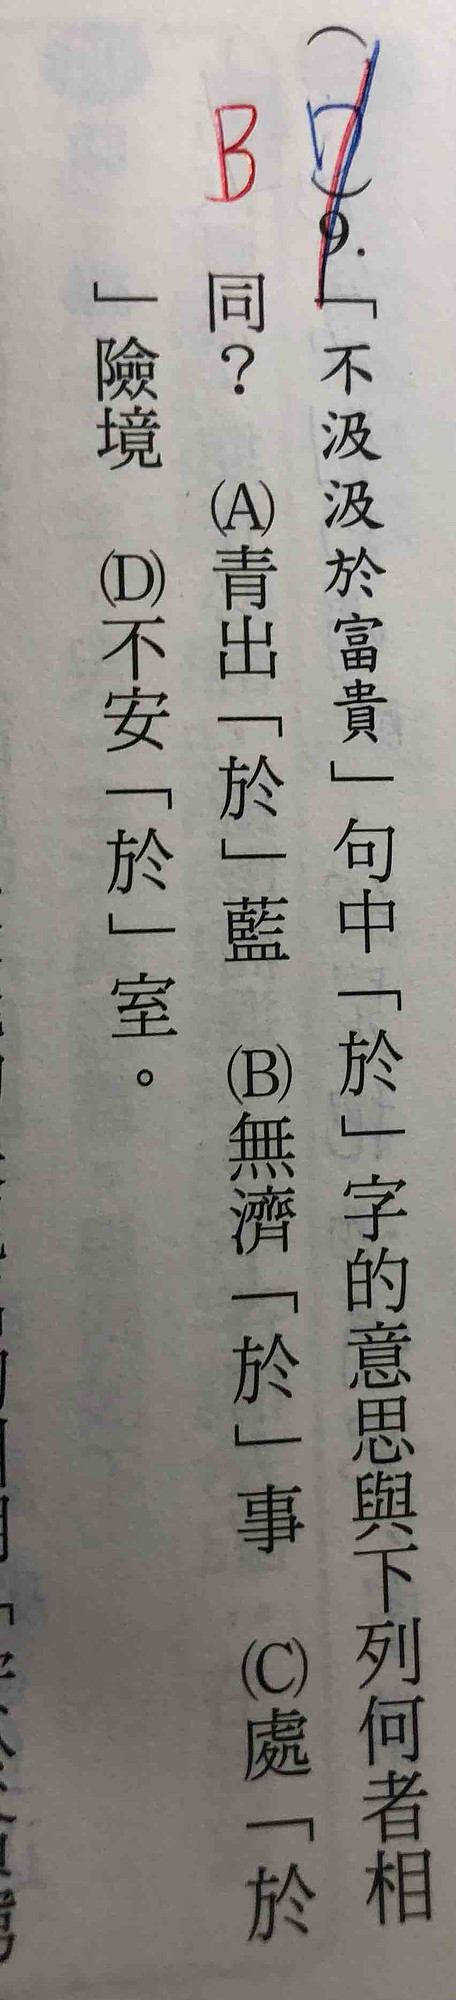 ( D ) 9.「不汲汲於富貴」句中「於」字的意思與下列何者相
B
同？ (A)青出「於」藍 (B)無濟「於」事 (C)處「於
」險境 (D)不安「於」室。